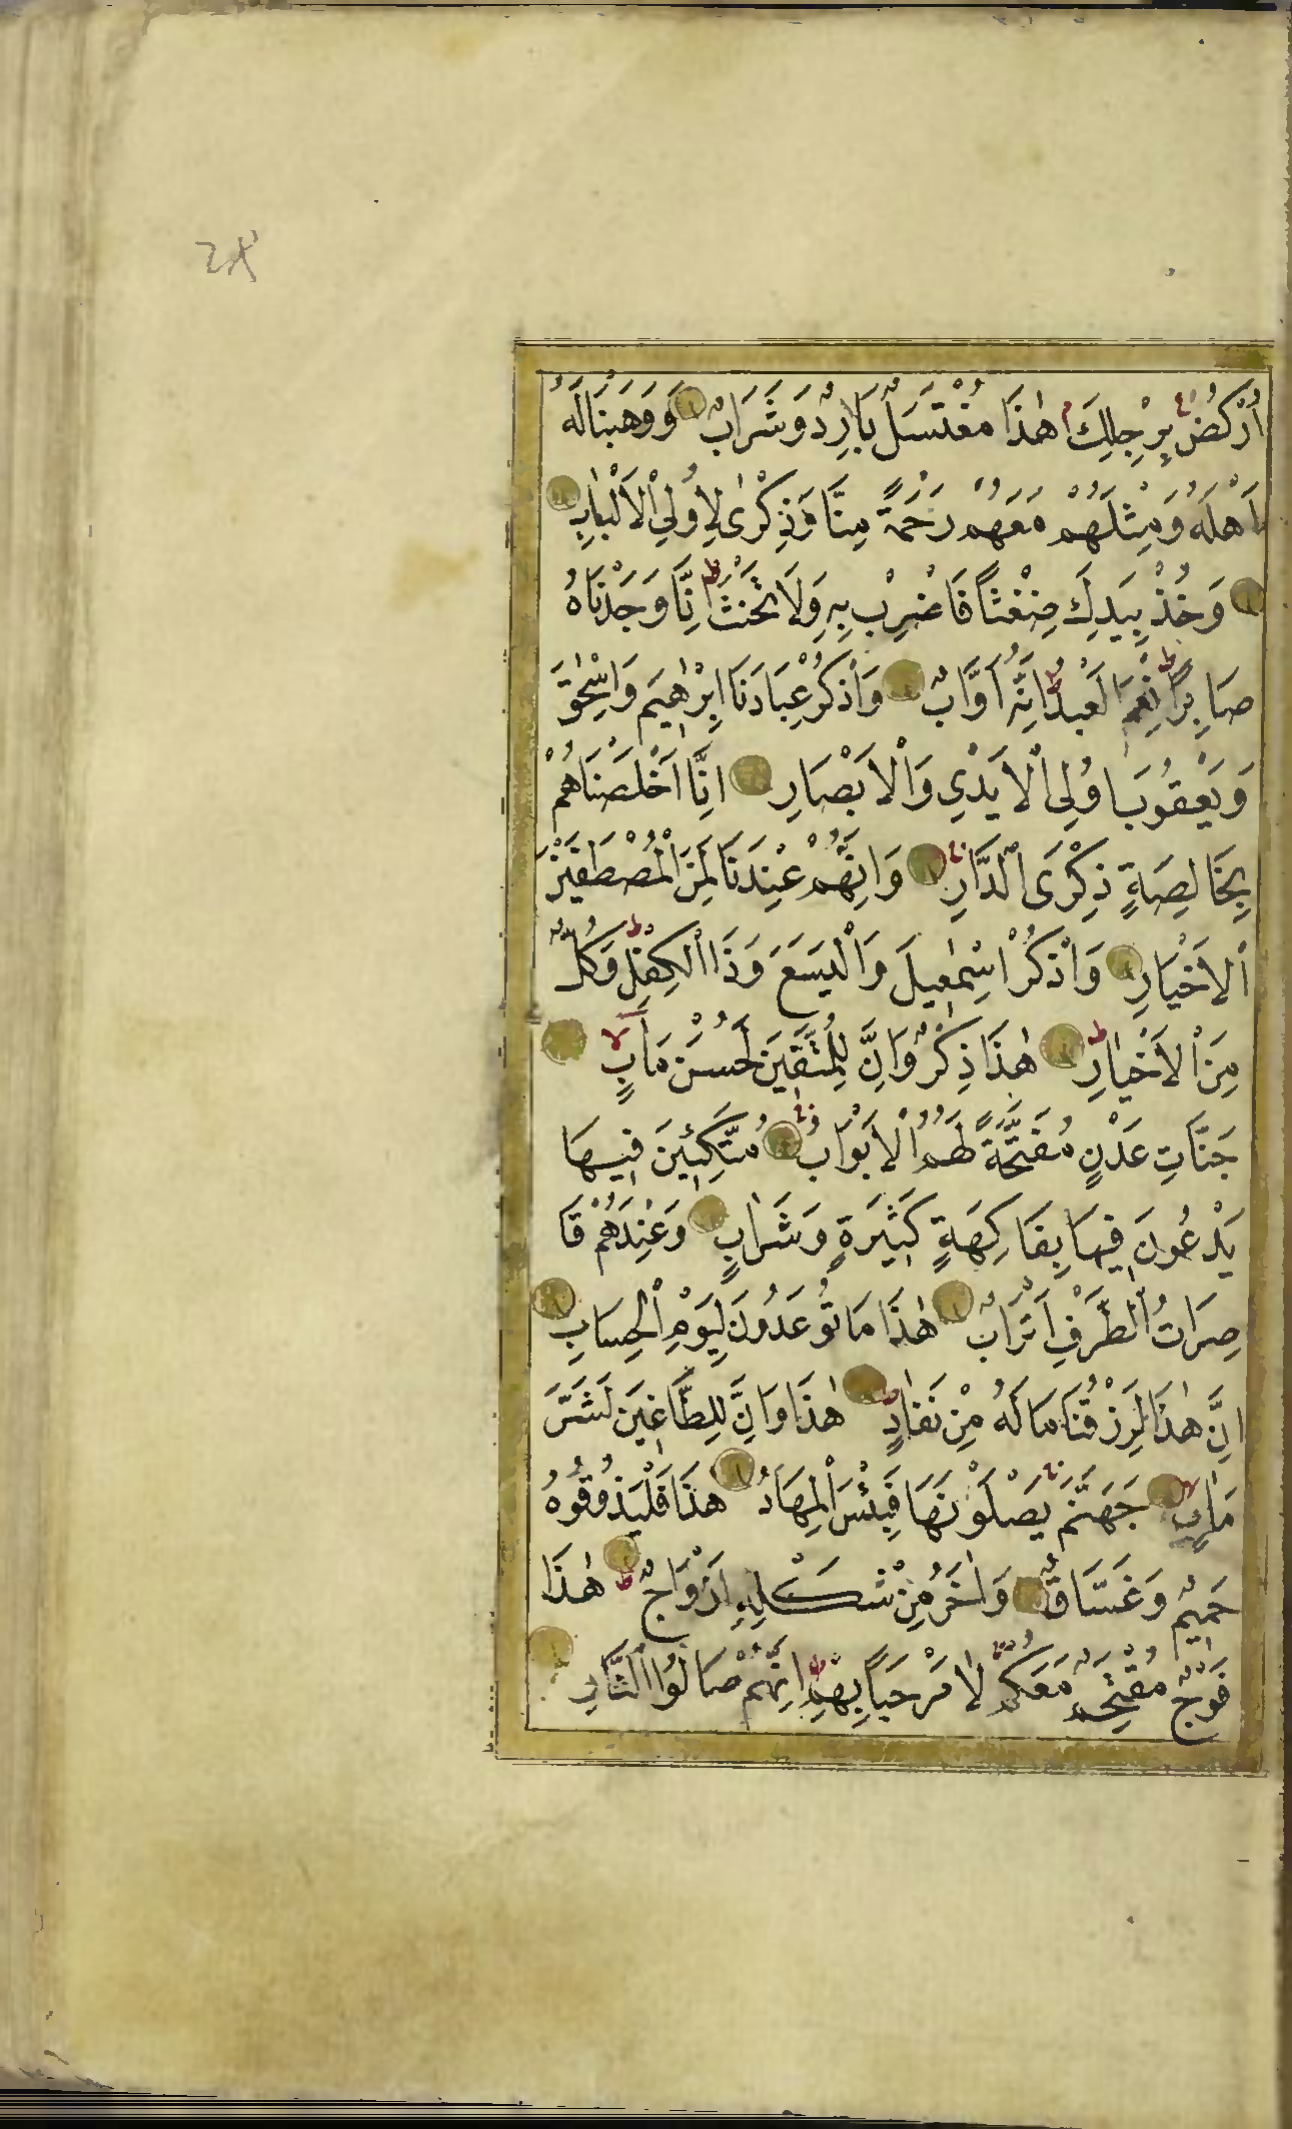 اُرْكُضْ بِرِجْلِكَ هٰذَا مُغْتَسَلٌ بَارِدٌ وَشَرَابٌ وَوَهَبْنَا لَهُ
اَهْلَهُ وَمِثْلَهُمْ مَعَهُمْ رَحْمَةً مِنَّا وَذِكْرٰى لِاُولِي الْاَلْبَابِ
وَخُذْ بِيَدِكَ ضِغْثًا فَاضْرِبْ بِهِ وَلَا تَحْنَثْ اِنَّا وَجَدْنَاهُ
صَابِرًا نِعْمَ الْعَبْدُ اِنَّهُ اَوَّابٌ وَاذْكُرْ عِبَادَنَا اِبْرٰهِيمَ وَاِسْحٰقَ
وَيَعْقُوبَ اُولِي الْاَيْدِي وَالْاَبْصَارِ اِنَّا اَخْلَصْنَاهُمْ
بِخَالِصَةٍ ذِكْرَى الدَّارِ وَاِنَّهُمْ عِنْدَنَا لَمِنَ الْمُصْطَفَيْنَ
الْاَخْيَارِ وَاذْكُرْ اِسْمٰعِيلَ وَالْيَسَعَ وَذَا الْكِفْلِ وَكُلٌّ
مِنَ الْاَخْيَارِ هٰذَا ذِكْرٌ وَاِنَّ لِلْمُتَّقِينَ لَحُسْنَ مَاٰبٍ
جَنَّاتِ عَدْنٍ مُفَتَّحَةً لَهُمُ الْاَبْوَابُ مُتَّكِئِينَ فِيهَا
يَدْعُونَ فِيهَا بِفَاكِهَةٍ كَثِيرَةٍ وَشَرَابٍ وَعِنْدَهُمْ قَا
صِرَاتُ الطَّرْفِ اَتْرَابٌ هٰذَا مَا تُوعَدُونَ لِيَوْمِ الْحِسَابِ
اِنَّ هٰذَا لَرِزْقُنَا مَا لَهُ مِنْ نَفَادٍ هٰذَا وَاِنَّ لِلطَّاغِينَ لَشَرَّ
مَاٰبٍ جَهَنَّمَ يَصْلَوْنَهَا فَبِئْسَ الْمِهَادُ هٰذَا فَلْيَذُوقُوهُ
حَمِيمٌ وَغَسَّاقٌ وَاٰخَرُ مِنْ شَكْلِهِ اَزْوَاجٌ هٰذَا
فَوْجٌ مُقْتَحِمٌ مَعَكُمْ لَا مَرْحَبًا بِهِمْ اِنَّهُمْ صَالُوا النَّارِ